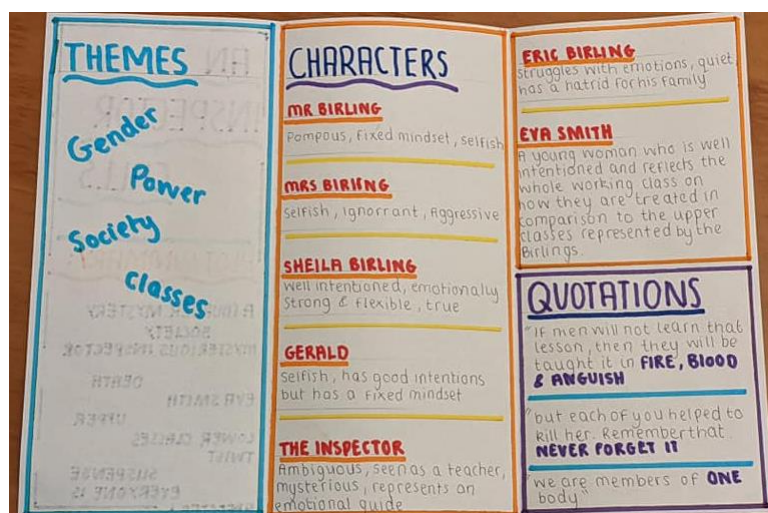 THEMES
Gender
Power
Society
classes
CHARACTERS
MR BIRLING
Pompous, fixed mindset, selfish
MRS BIRLING
Selfish, ignorrant, Aggressive
SHEILA BIRLING
Well intentioned, emotionally
Strong & flexible, true
GERALD
Selfish, has good intentions
but has a fixed mindset
THE INSPECTOR
Ambiguous, seen as a teacher,
mysterious, represents an
emotional guide
ERIC BIRLING
struggles with emotions, quiet,
has a hatrid for his family
EVA SMITH
A young woman who is well
intentioned and reflects the
whole working class on
how they are treated in
comparison to the upper
classes represented by the
Birlings.
QUOTATIONS
"If men will not learn that
lesson, then they will be
taught it in FIRE, BLOOD
& ANGUISH
"but each of you helped to
kill her. Remember that.
NEVER FORGET IT
"we are members of ONE
body"
AN
INSPECTOR
CALLS
A MURDER MYSTERY
SOCIETY
MYSTERIOUS INSPECTOR
DEATH
EVA SMITH
UPPER
LOWER CLASSES
TWIST
SUSPENSE
EVERYONE IS